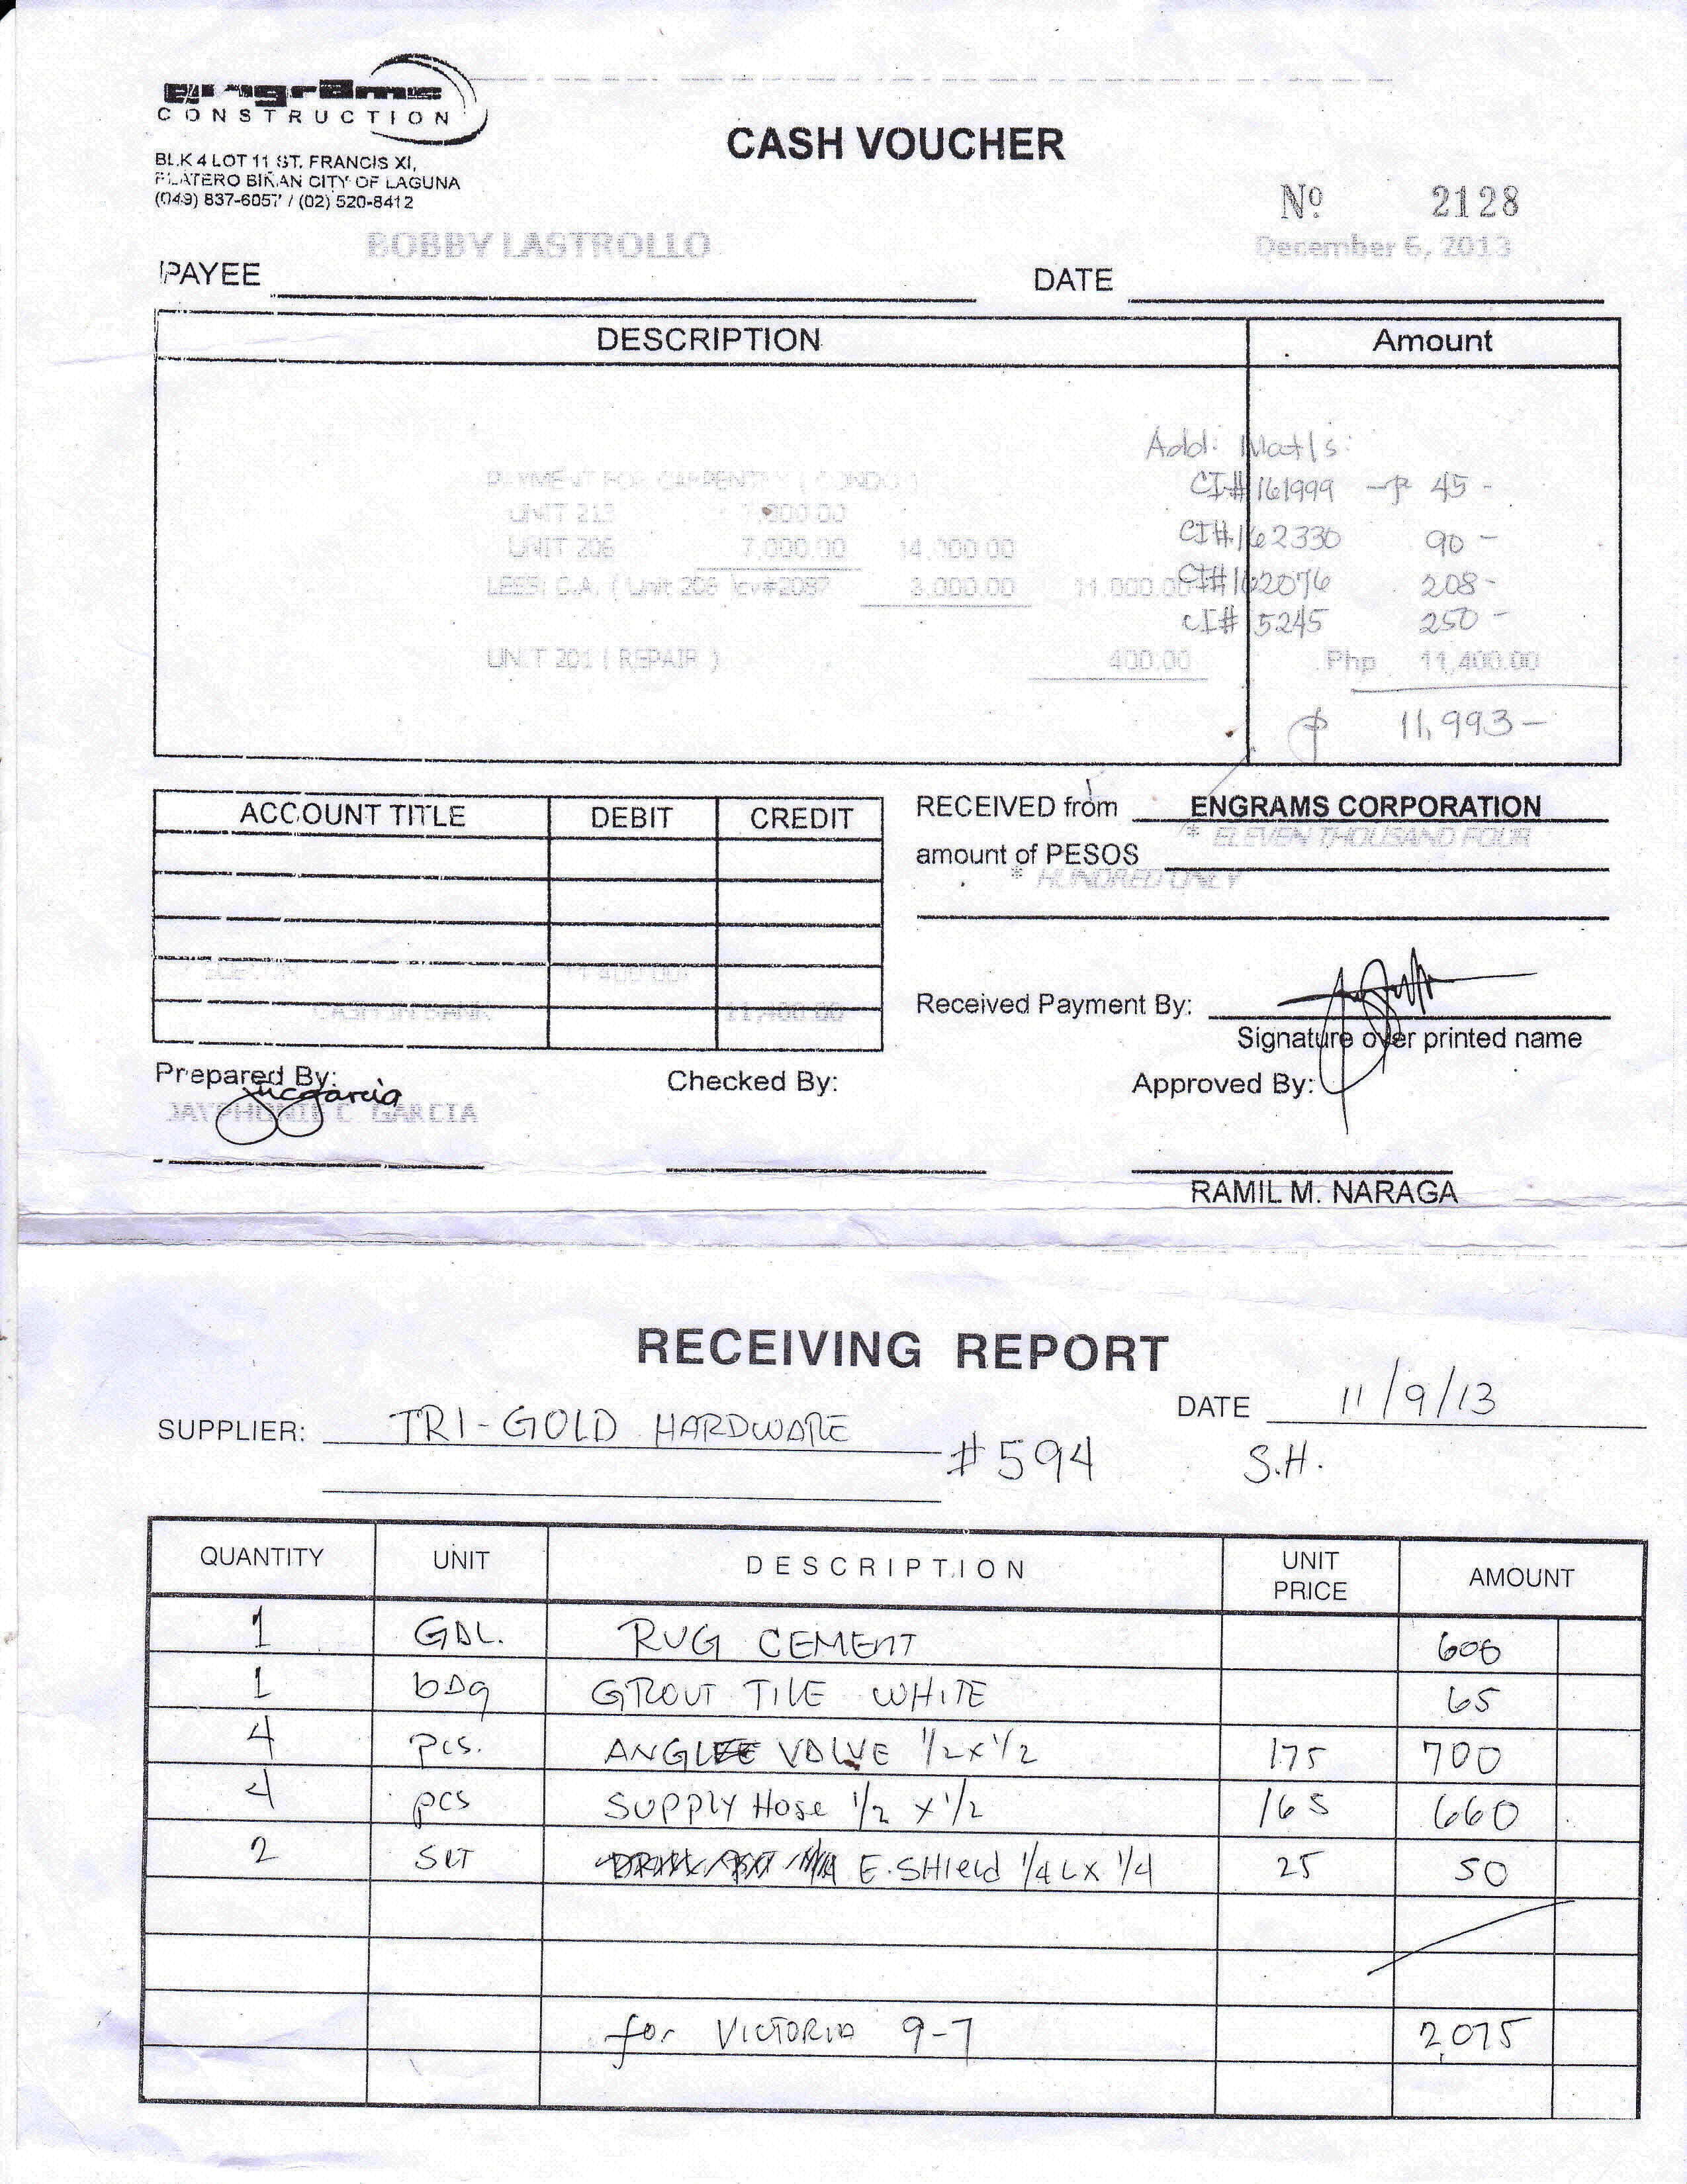 engrams
CONSTRUCTION
BLK 4 LOT 11 ST. FRANCIS XI,
PLATERO BIÑAN CITY OF LAGUNA
(049) 837-6057 / (02) 520-8412
CASH VOUCHER
Nº 2128
BOBBY LASTROLLO
December 6, 2013
PAYEE DATE
DESCRIPTION Amount
Add: Matls:
PAYMENT FOR CARPENTRY ( CONDO )
CI# 161999 -₱ 45 -
UNIT 213 7,000.00
CI# 162330 90 -
UNIT 206 7,000.00 14,000.00
CI# 162076 208-
LESS: C.A. ( Unit 206 /cv#2087 3,000.00 11,000.00
CI# 5245 250 -
UNIT 201 ( REPAIR ) 400.00 Php 11,400.00
₱ 11,993-
ACCOUNT TITLE DEBIT CREDIT
11,400.00
CASH IN BANK 11,400.00
RECEIVED from ENGRAMS CORPORATION
* ELEVEN THOUSAND FOUR
amount of PESOS
* HUNDRED ONLY
Received Payment By:
Signature over printed name
Prepared By: Checked By: Approved By:
jucgarcia
GARCIA
RAMIL M. NARAGA
RECEIVING REPORT
DATE 11/9/13
SUPPLIER: TRI-GOLD HARDWARE
#594 S.H.
QUANTITY UNIT DESCRIPTION UNIT PRICE AMOUNT
1 GAL. RUG CEMENT 600
1 bag GROUT TILE WHITE 65
4 pcs. ANGLE VALVE 1/2 x 1/2 175 700
4 pcs SUPPLY Hose 1/2 x 1/2 165 660
2 SET E-SHIELD 1/4 L x 1/4 25 50
for VICTORIA 9-7 2,075